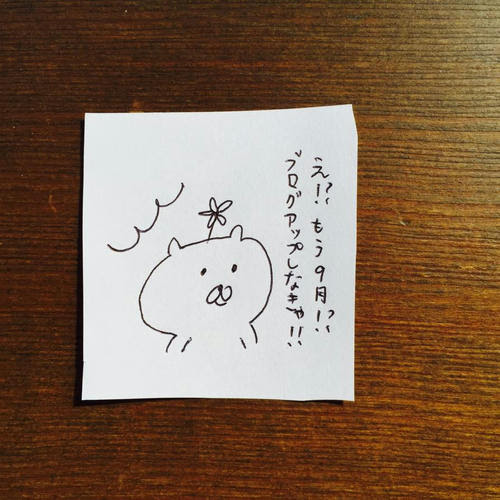 え!?もう9月!?
ブログアップしなきゃ!!